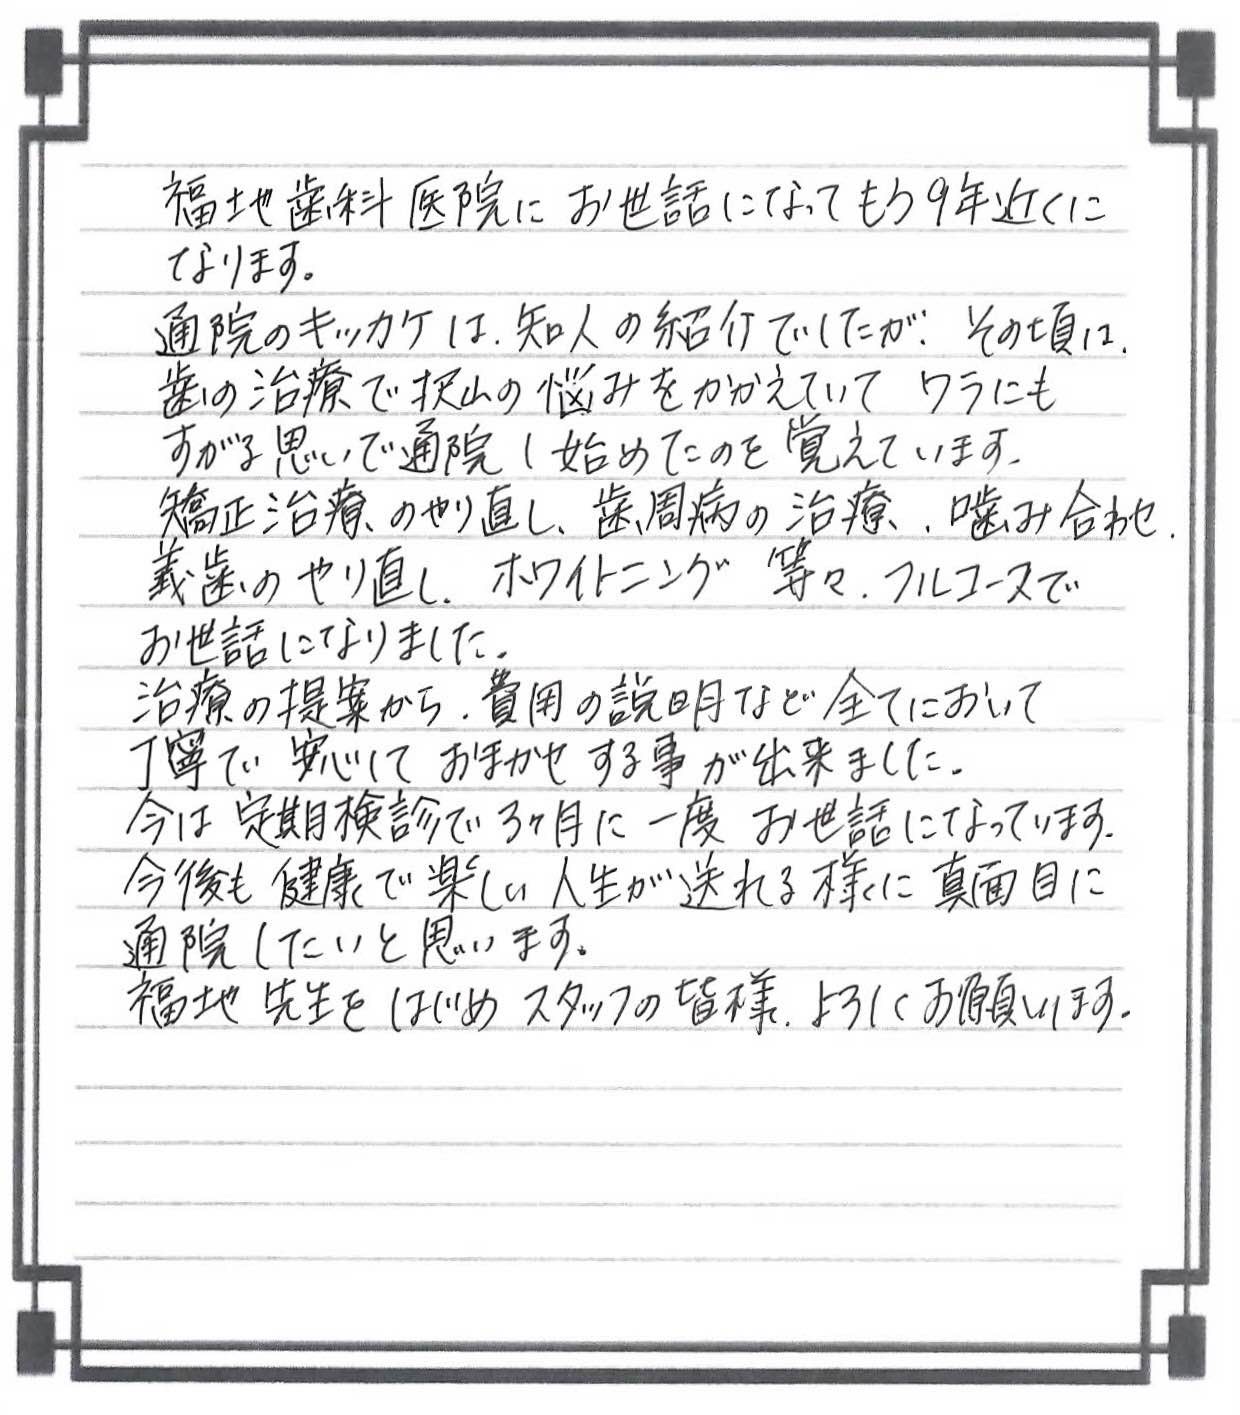 福地歯科医院にお世話になってもう9年近くに
なります。
通院のキッカケは、知人の紹介でしたが、その頃は、
歯の治療で沢山の悩みをかかえていてワラにも
すがる思いで通院し始めたのを覚えています。
矯正治療のやり直し、歯周病の治療、噛み合わせ、
義歯のやり直し、ホワイトニング等々、フルコースで
お世話になりました。
治療の提案から、費用の説明など全てにおいて
丁寧で安心しておまかせする事が出来ました。
今は定期検診で3ヶ月に一度お世話になっています。
今後も健康で楽しい人生が送れる様に真面目に
通院したいと思います。
福地先生をはじめスタッフの皆様、よろしくお願いします。